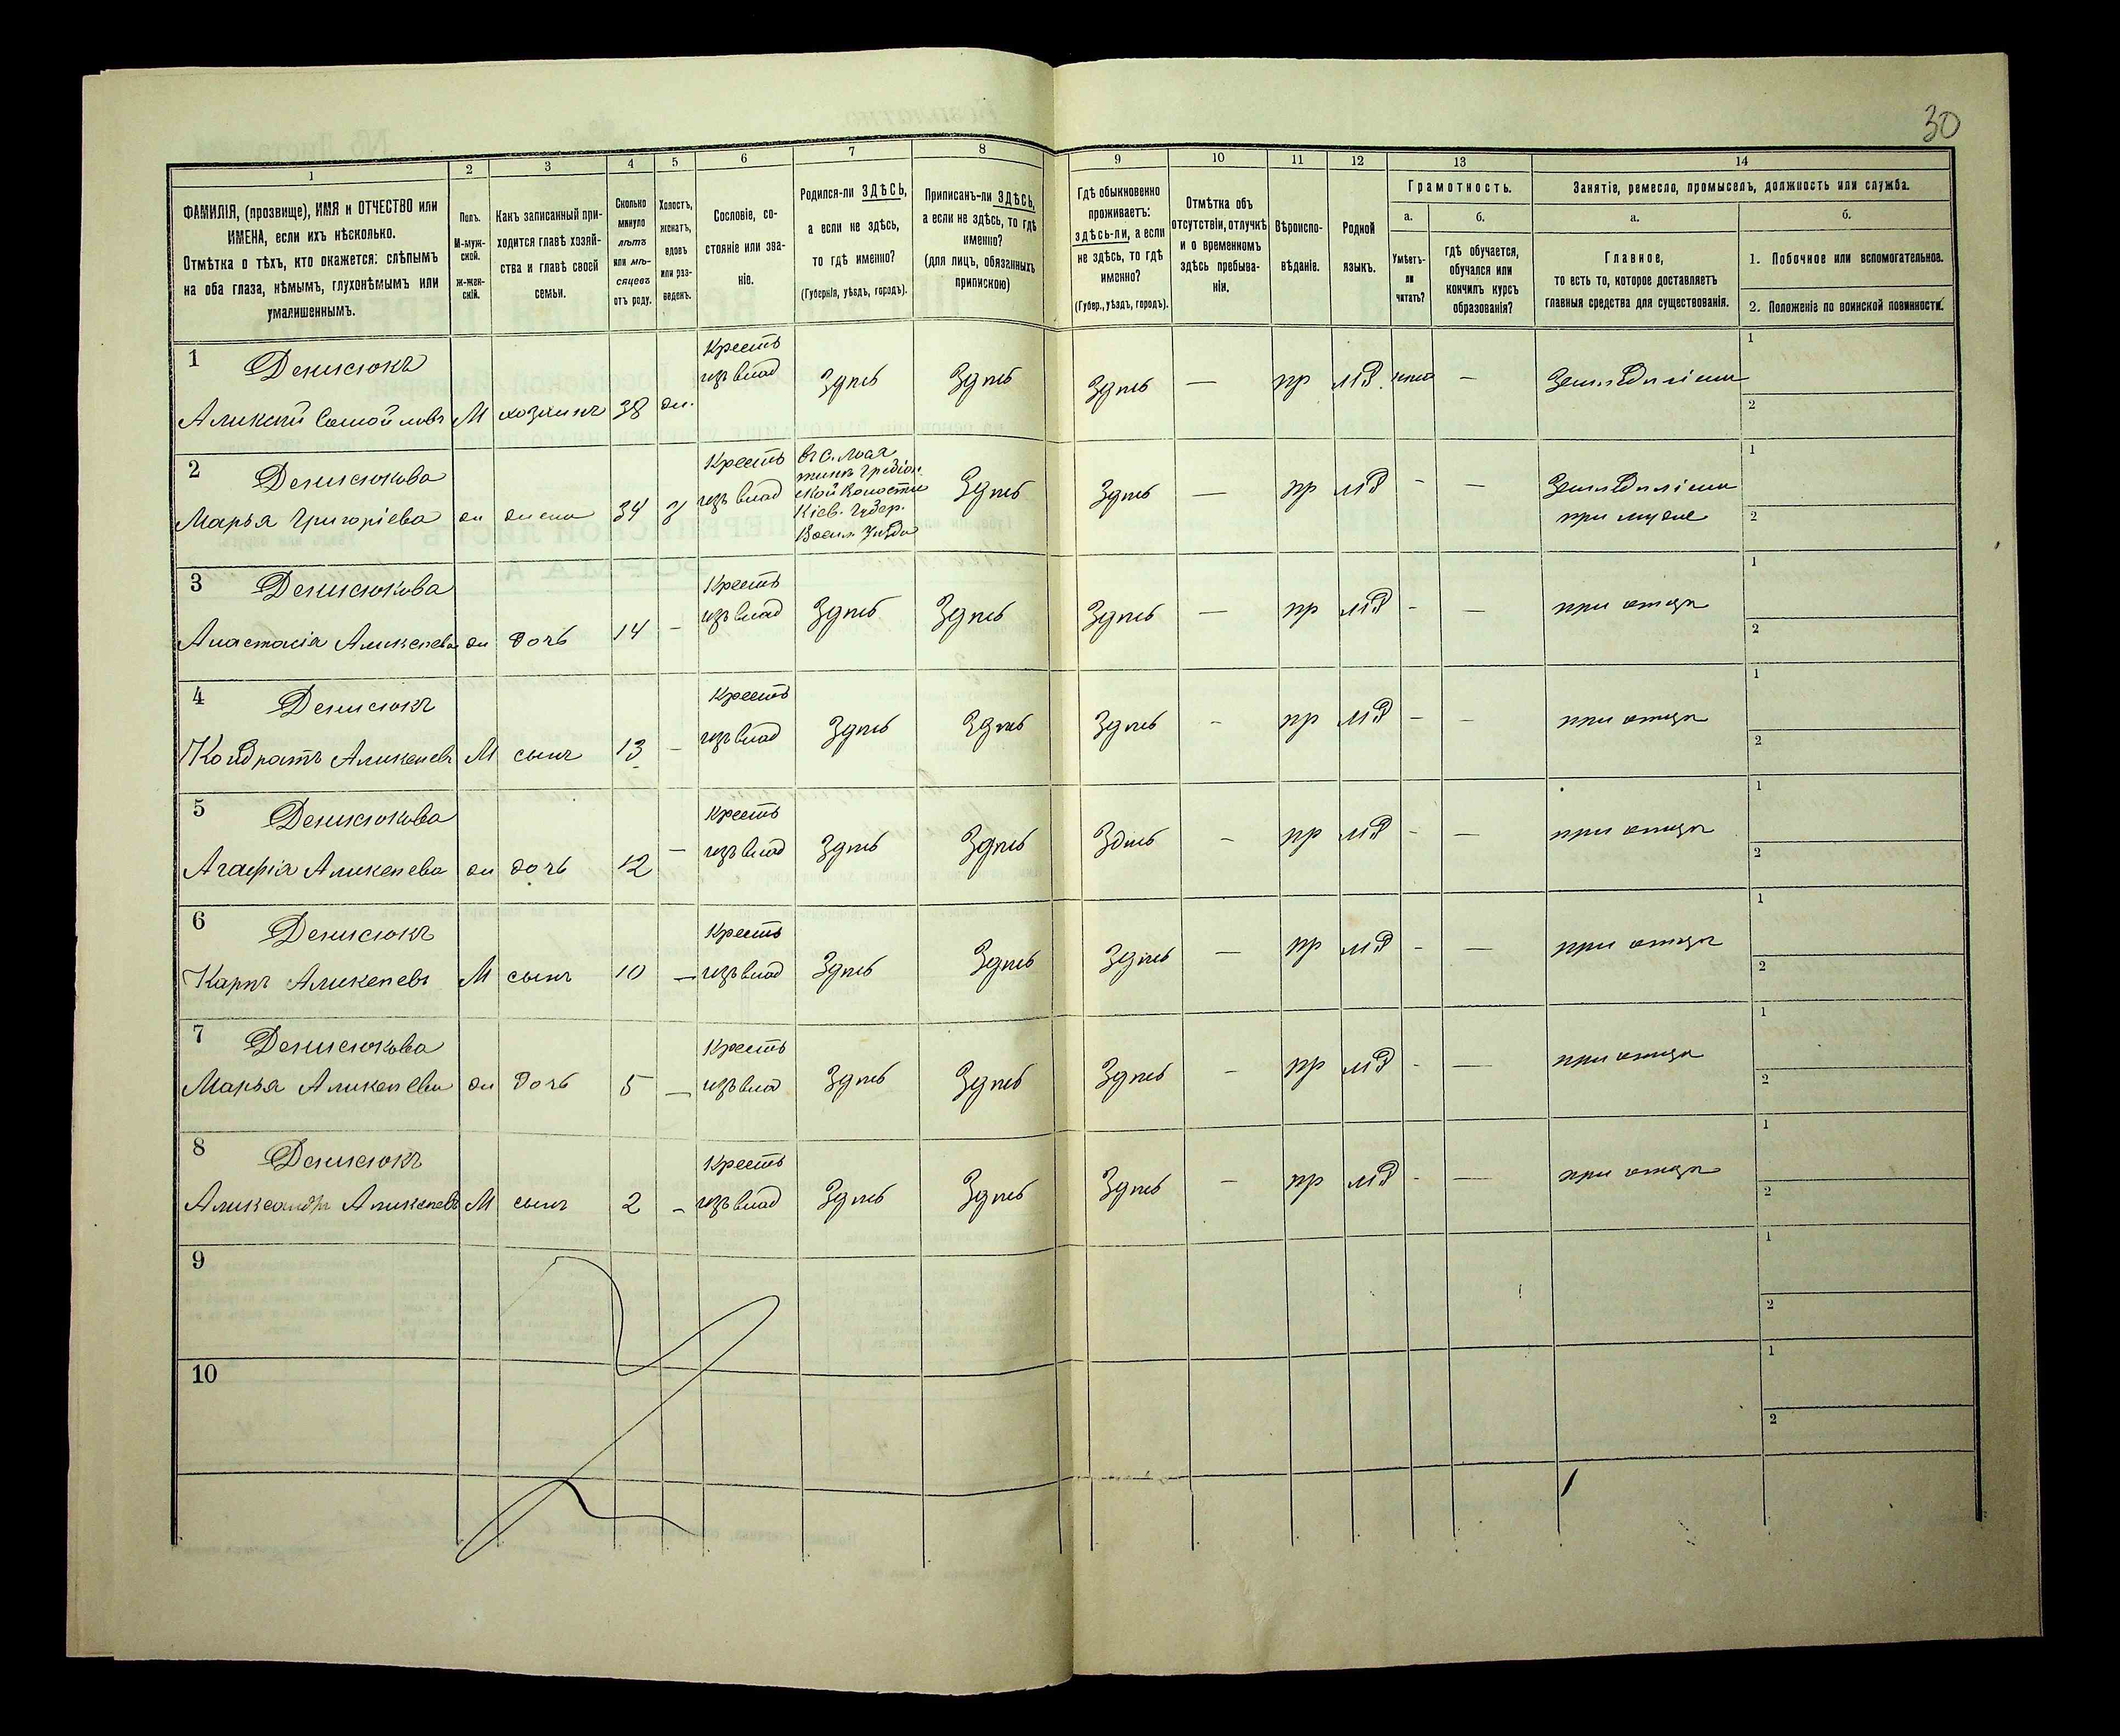 30
1
2
3
4
5
6
7
8
9
10
11
12
13
14
ФАМИЛІЯ, (прозвище), ИМЯ и ОТЧЕСТВО или
ИМЕНА, если ихъ нѣсколько.
Отмѣтка о тѣхъ, кто окажется: слѣпымъ
на оба глаза, нѣмымъ, глухонѣмымъ или
умалишеннымъ.
Полъ.
М-муж-
ской.
Ж-жен-
скій.
Какъ записанный при-
ходится главѣ хозяй-
ства и главѣ своей
семьи.
Сколько
минуло
лѣтъ
или мѣ-
сяцевъ
отъ роду.
Холостъ,
женатъ,
вдовъ
или раз-
веденъ.
Сословіе, со-
стояніе или зва-
ніе.
Родился-ли ЗДѢСЬ,
а если не здѣсь,
то гдѣ именно?
(Губернія, уѣздъ, городъ).
Приписанъ-ли ЗДѢСЬ,
а если не здѣсь, то гдѣ
именно?
(для лицъ, обязанныхъ
припискою)
Гдѣ обыкновенно
проживаетъ:
здѣсь-ли, а если
не здѣсь, то гдѣ
именно?
(Губер., уѣздъ, городъ).
Отмѣтка объ
отсутствіи, отлучкѣ
и о временномъ
здѣсь пребыва-
ніи.
Вѣроиспо-
вѣданіе.
Родной
языкъ.
Грамотность.
а.
Умѣетъ-
ли
читать?
б.
гдѣ обучается,
обучался или
кончилъ курсъ
образованія?
Занятіе, ремесло, промыселъ, должность или служба.
а.
Главное,
то есть то, которое доставляетъ
главныя средства для существованія.
б.
1. Побочное или вспомогательное.
2. Положеніе по воинской повинности.
1 Денисюкъ
Алексѣй Самойловъ М хозяинъ 38 ж.
Кресть
изъ влад Здѣсь Здѣсь Здѣсь — пр мд — Земледѣліем
1
2
2 Денисюкова
Марья Григоріева ж жена 34 з
Кресть
изъ влад
Кіев. Губер.
Здѣсь Здѣсь — пр мд - — Земледѣліем
при мужѣ
1
2
3 Денисюкова
Анастасія Алексѣева ж дочь 14 —
Кресть
изъ влад Здѣсь Здѣсь Здѣсь — пр мд - — при отцѣ
1
2
4 Денисюкъ
Кондратъ Алексѣевъ М сынъ 13 —
Кресть
изъ влад Здѣсь Здѣсь Здѣсь - пр мд - - при отцѣ
1
2
5 Денисюкова
Агафія Алексѣева ж дочь 12 —
Кресть
изъ влад Здѣсь Здѣсь Здѣсь - пр мд - — при отцѣ
1
2
6 Денисюкъ
Карпъ Алексѣевъ М сынъ 10 —
Кресть
изъ влад Здѣсь Здѣсь Здѣсь — пр мд - — при отцѣ
1
2
7 Денисюкова
Марья Алексѣева ж дочь 5 —
Кресть
изъ влад Здѣсь Здѣсь Здѣсь - пр мд - — при отцѣ
1
2
8 Денисюкъ
Александръ Алексѣевъ М сынъ 2 -
Кресть
изъ влад Здѣсь Здѣсь Здѣсь - пр мд - — при отцѣ
1
2
9
1
2
10
1
2